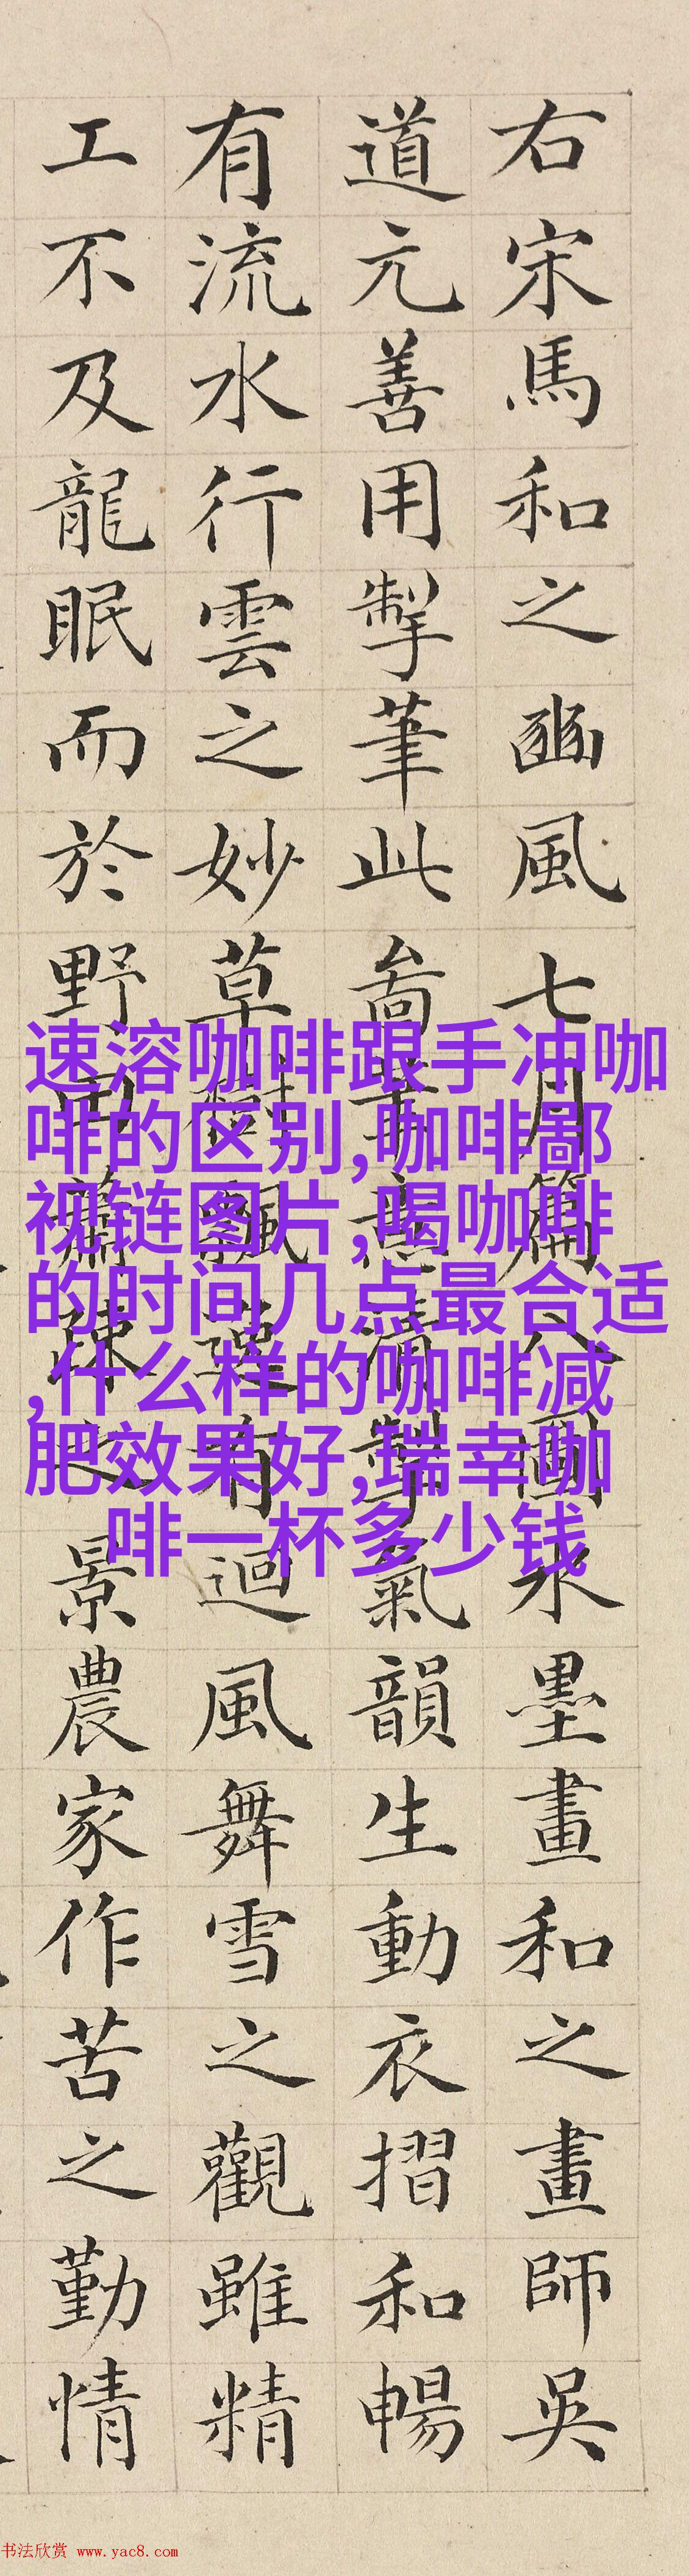 右宋馬和之豳風七月篇八圖水墨畫和之畫師吳
道元善用掣筆此啚筆意清勁氣韻生動衣摺和暢
有流水行雲之妙草樹飄有迴風舞雪之觀雖精
工不及龍眠而於野田蕭疎之景農家作苦之勤情
速溶咖啡跟手冲咖
啡的区别,咖啡鄙
视链图片,喝咖啡
的时间几点最合适
,什么样的咖啡减
肥效果好,瑞幸咖
啡一杯多少钱
书法欣赏 www.yac8.com